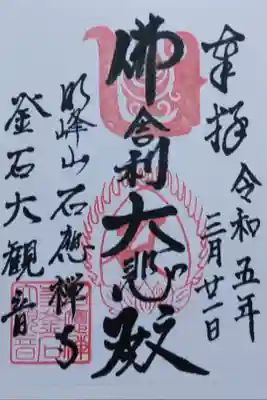 奉拝
令和五年
三月廿一日
佛舎利大悲殿
明峰山石應禅寺
釜石大観音